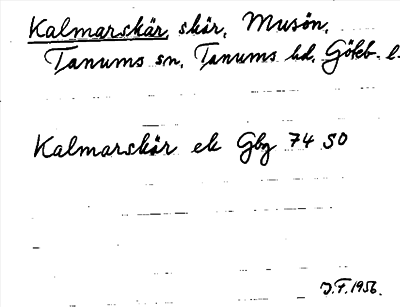 Kalmarskär, skär, Musön,
Tanums sn, Tanums hd, Göteb. l.
Kalmarskär ek Gbg 74 SO
J.F. 1956.